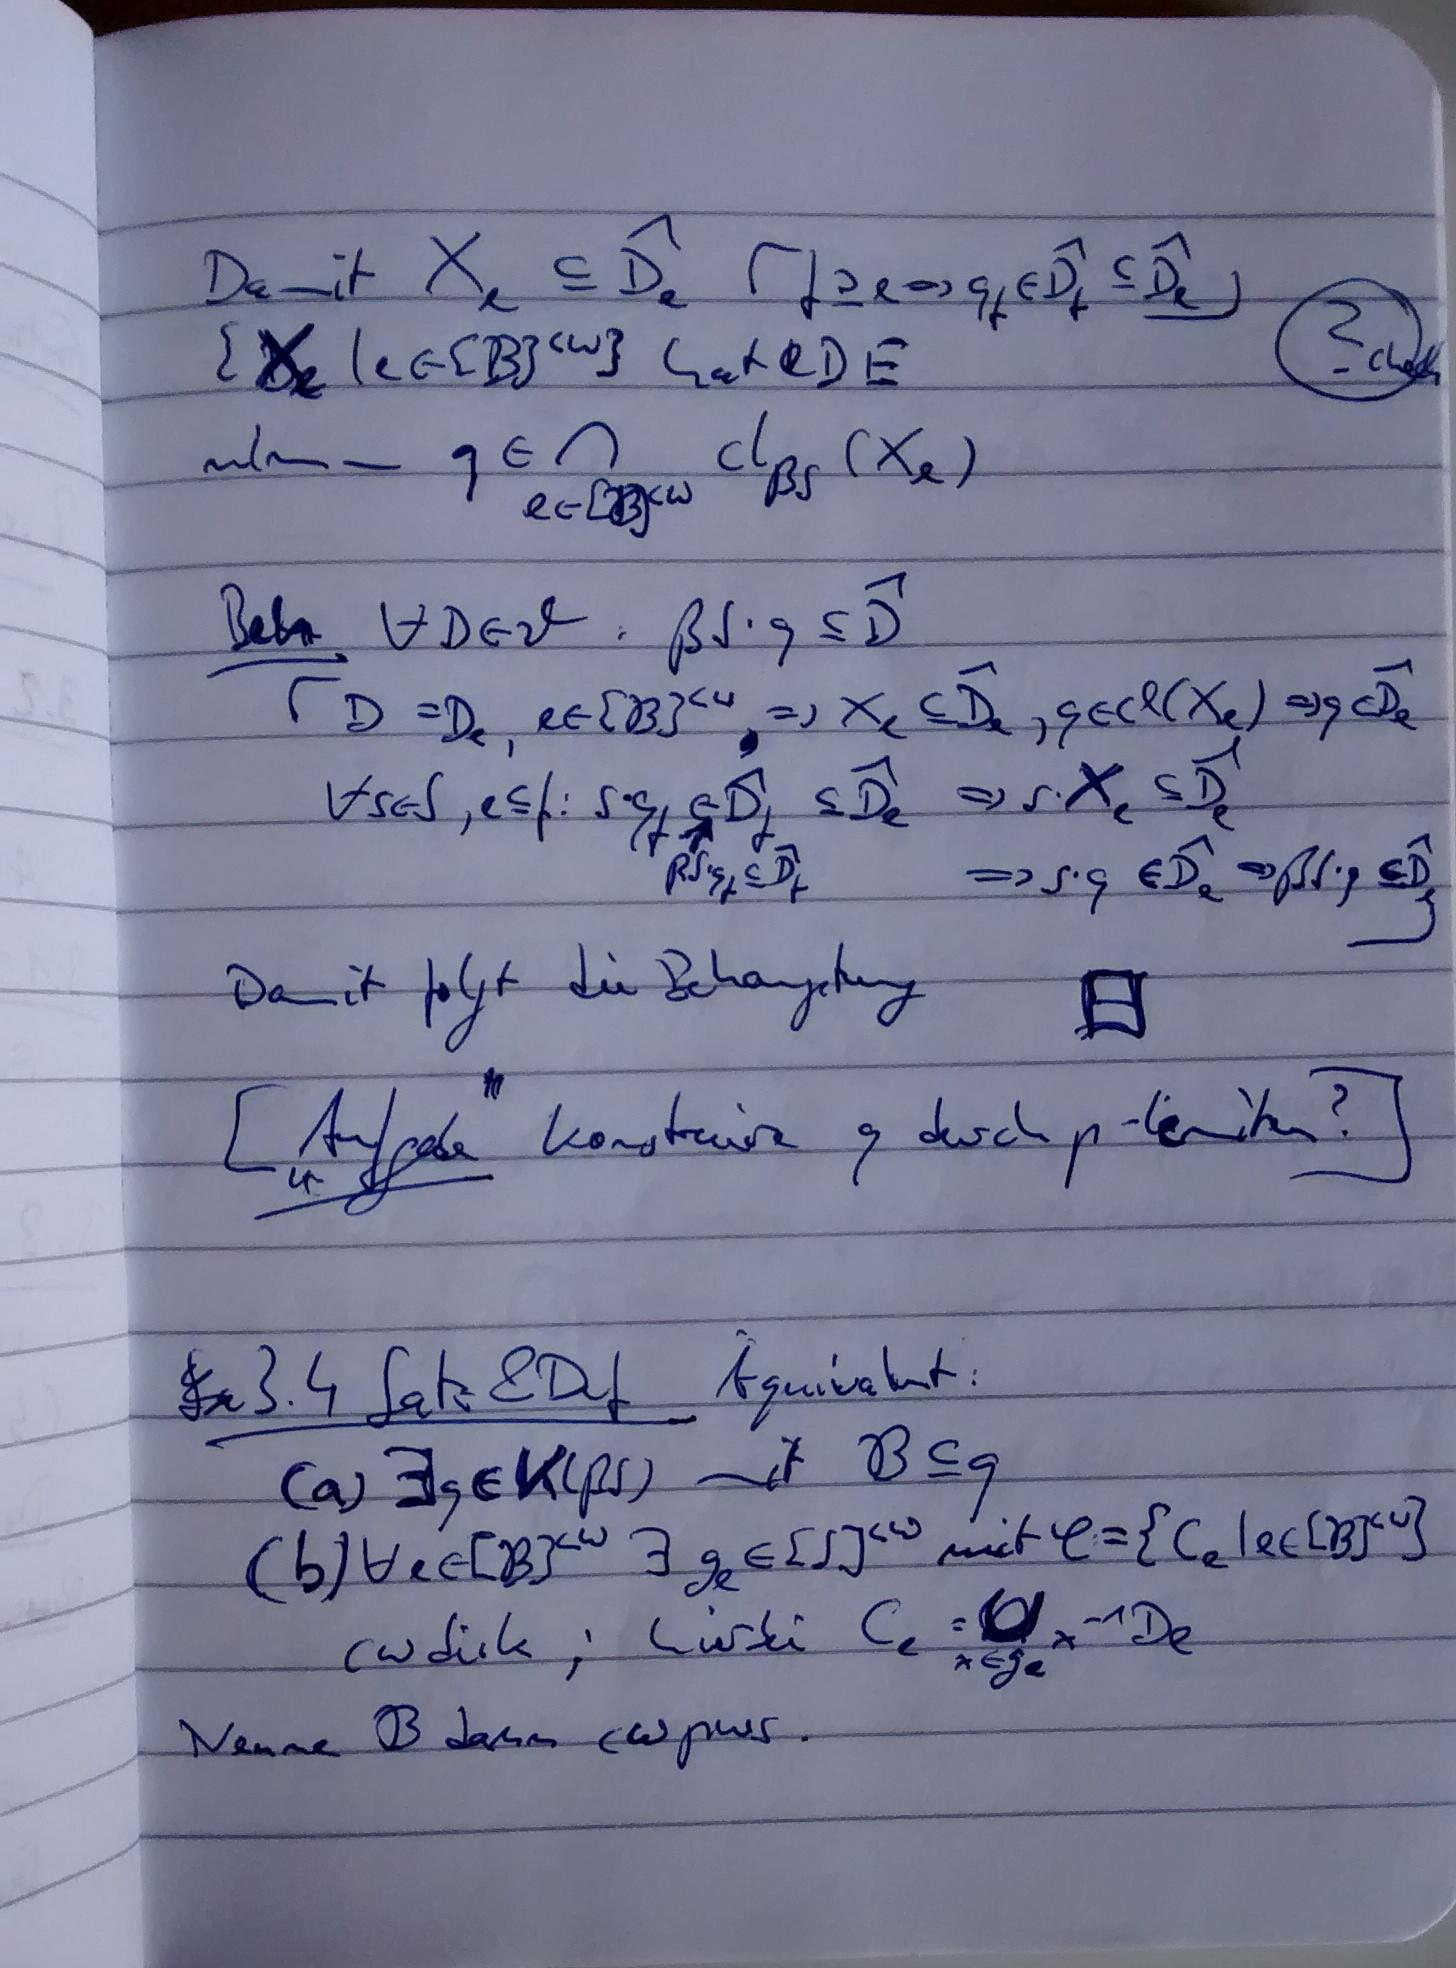 Damit X_e ⊆ D̂_e ⌈ f ⊇ e ⇒ q_f ∈ D̂_f ⊆ D̂_e ⌋
? check
{X_e | e ∈ [B]^{<ω}} hat eDE
nehme q ∈ ⋂_{e∈[B]^{<ω}} cl_{βS} (X_e)
Beh. ∀ D ∈ 𝒟 : βS·q ⊆ D̂
⌈ D = D_e, e ∈ [B]^{<ω}, ⇒ X_e ⊆ D̂_e, q ∈ cl(X_e) ⇒ q ∈ D̂_e
∀ s ∈ S, e ⊆ f: s·q_f ∈ D̂_f ⊆ D̂_e ⇒ s·X_e ⊆ D̂_e
βS·q_f ⊆ D̂_f ⇒ s·q ∈ D̂_e ⇒ βS·q ⊆ D̂_e ⌋
Damit folgt die Behauptung
["Aufgabe" Konstruiere q durch p-limiten?]
3.4 Satz & Def Äquivalent:
(a) ∃q ∈ K(βS) mit B ⊆ q
(b) ∀ e ∈ [B]^{<ω} ∃ g_e ∈ [S]^{<ω} mit 𝒞 = {C_e | e ∈ [B]^{<ω}}
cw dick; hierbei C_e = ⋃_{x∈g_e} x^{-1} D_e
Nenne B dann cwpws.